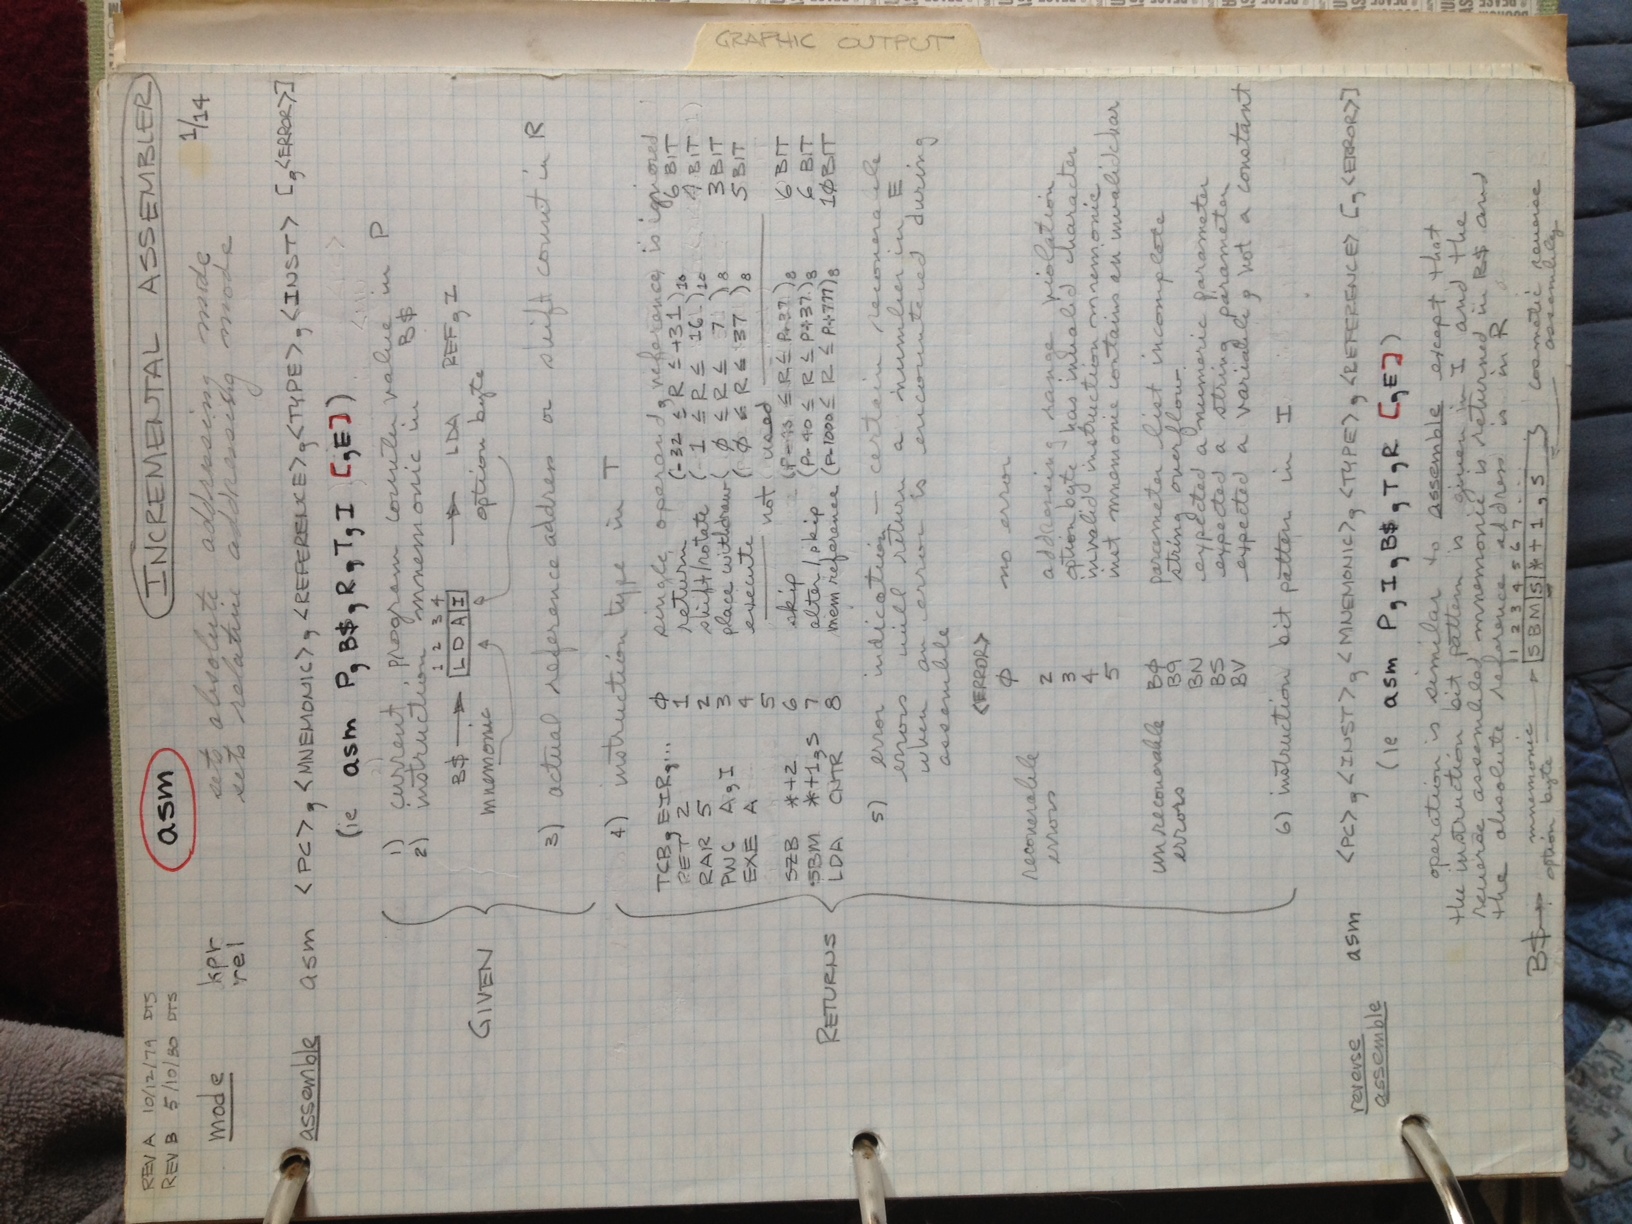 GRAPHIC OUTPUT
REV A 10/12/79 DTS
REV B 5/10/80 DTS
asm
INCREMENTAL ASSEMBLER
1/14
mode kpr sets absolute addressing mode
rel sets relative addressing mode
assemble asm <PC>,<MNEMONIC>,<REFERENCE>,<TYPE>,<INST> [,<ERROR>]
(ie asm P,B$,R,T,I [,E])
GIVEN
1) current program counter value in P
2) instruction mnemonic in B$
1 2 3 4
B$ → LDAI → LDA REF,I
mnemonic option byte
3) actual reference address or shift count in R
RETURNS
4) instruction type in T
TCB,EIR,... Φ single operand, reference is ignored 6 BIT
RET 2 1 return (-32 ≤ R ≤ +31)10 6 BIT
RAR 5 2 shift/rotate (1 ≤ R ≤ 16)10 4 BIT
PWC A,I 3 place withdraw (Φ ≤ R ≤ 7)8 3 BIT
EXE A 4 execute (Φ ≤ R ≤ 37)8 5 BIT
5 not used
SZB *+2 6 skip (P-40 ≤ R ≤ P+37)8 6 BIT
SBM *+1,S 7 alter/skip (P-40 ≤ R ≤ P+37)8 6 BIT
LDA CNTR 8 mem reference (P-1000 ≤ R ≤ P+777)8 1Φ BIT
5) error indication — certain recoverable
errors will return a number in E
when an error is encountered during
assemble
<ERROR>
Φ no error
recoverable errors
2 addressing range violation
3 option byte has invalid character
4 invalid instruction mnemonic
5 inst mnemonic contains an invalid char
unrecoverable errors
BΦ parameter list incomplete
B9 string overflow
BN expected a numeric parameter
BS expected a string parameter
BV expected a variable, not a constant
6) instruction bit pattern in I
reverse assemble
asm <PC>,<INST>,<MNEMONIC>,<TYPE>,<REFERENCE> [,<ERROR>]
(ie asm P,I,B$,T,R [,E])
operation is similar to assemble except that
the instruction bit pattern is given in I and the
reverse assembled mnemonic is returned in B$ and
the absolute reference address is in R
1 2 3 4 5 6 7
B$ → mnemonic SBMS*+1,S cosmetic reverse assembly
option byte